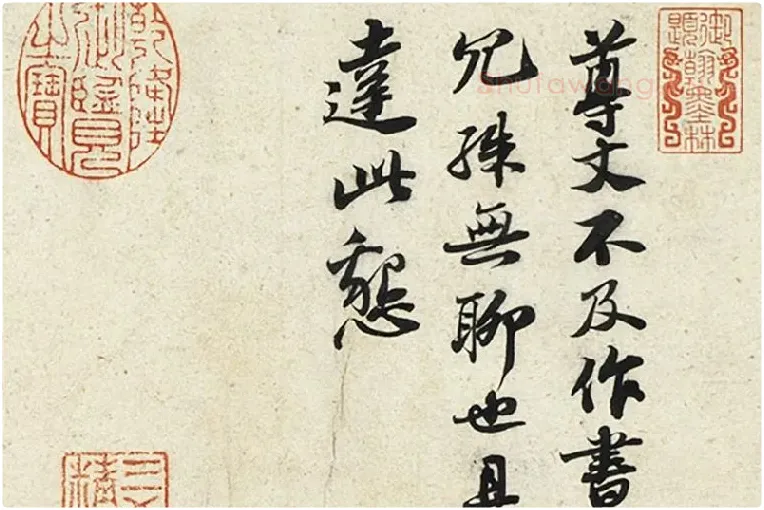 尊丈不及作書
兄殊無聊也且
達此懇
御題翰墨林
乾隆御覽之寶
shufawang
三
精